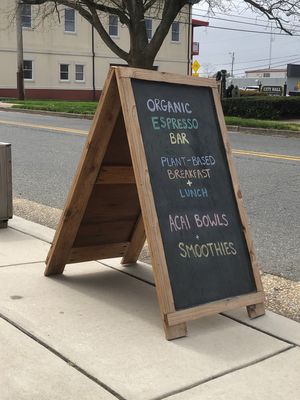 ORGANIC
ESPRESSO
BAR
PLANT-BASED
BREAKFAST
+
LUNCH
ACAI BOWLS
+
SMOOTHIES
CITY HALL